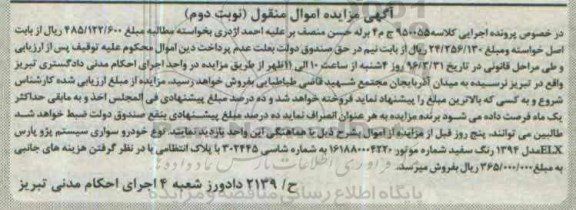 آگهی مزایده اموال منقول (نوبت دوم)
در خصوص پرونده اجرایی کلاسه ۹۵۰۰۵۵ ج م۴ برله حسن منصف بر علیه احمد اژدری بخواسته مطالبه مبلغ ۴۸۵/۱۲۲/۶۰۰ ریال از بابت
اصل خواسته ومبلغ ۲۴/۲۵۶/۱۳۰ ریال از بابت نیم در حق صندوق دولت بعلت عدم پرداخت دین اموال محکوم علیه توقیف پس از ارزیابی
و طی مراحل قانونی در تاریخ ۹۶/۳/۳۱ روز ۴شنبه از ساعت ۱۰ الی ۱۱ظهر از طریق مزایده در واحد اجرای احکام مدنی دادگستری تبریز
واقع در تبریز نرسیده به میدان آذربایجان مجتمع شهید قاضی طباطبایی بفروش خواهد رسید. مزایده از مبلغ ارزیابی شده کارشناس
شروع و به کسی که بالاترین مبلغ را پیشنهاد نماید فروخته خواهد شد و ده درصد مبلغ پیشنهادی فی المجلس اخذ و به مابقی حداکثر
یک ماه فرصت داده می شود برنده مزایده به هر عنوان انصراف نماید ده درصد مبلغ پیشنهادی بنفع صندوق دولت ضبط خواهد شد
طالبین می توانند، پنج روز قبل از مزایده از اموال بشرح ذیل با هماهنگی این واحد بازدید نمایند. نوع خودرو سواری سیستم پژو پارس
ELXمدل ۱۳۹۴ رنگ سفید شماره موتور ۱۶۱۸۸۰۰۰۴۲۲۰ به شماره شاسی ۳۰۲۴۴۵ با پلاک انتظامی با در نظر گرفتن هزینه های جانبی
به مبلغ ۳۶۵/۰۰۰/۰۰۰ ریال بفروش میرسد.
ح/ ۲۱۳۹ دادورز شعبه ۴ اجرای احکام مدنی تبریز
پایگاه اطلاع رسانی مناقصه و مزایده